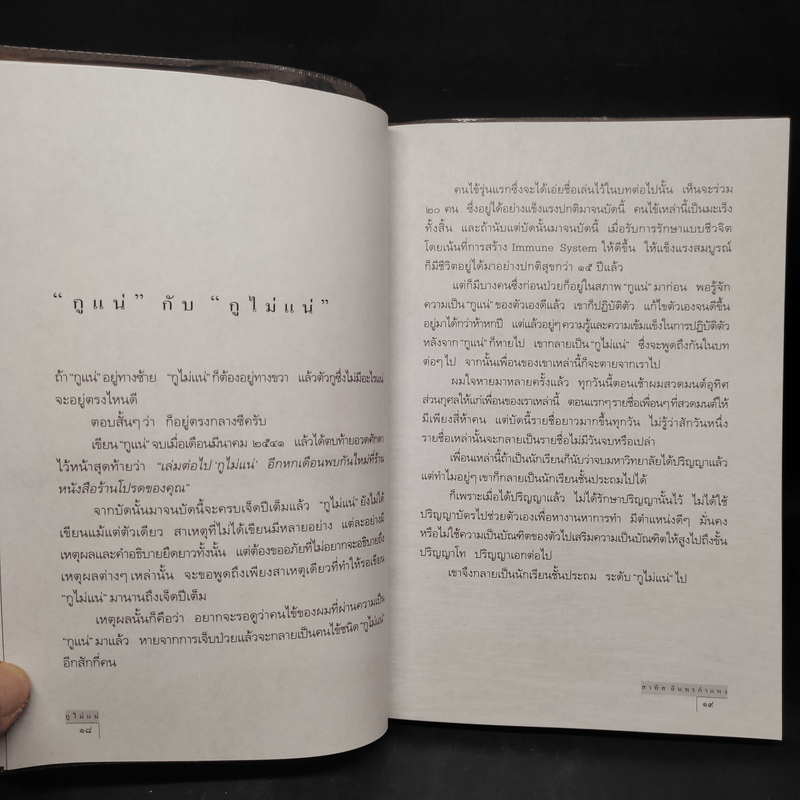 “กูแน่” กับ “กูไม่แน่”
ถ้า “กูแน่” อยู่ทางซ้าย “กูไม่แน่” ก็ต้องอยู่ทางขวา แล้วตัวกูซึ่งไม่มีอะไรแน่
จะอยู่ตรงไหนดี
ตอบสั้นๆ ว่า ก็อยู่ตรงกลางซีครับ
เขียน “กูแน่” จบเมื่อเดือนมีนาคม ๒๕๔๑ แล้วได้ตบท้ายอวดศักดา
ไว้หน้าสุดท้ายว่า “เล่มต่อไป ‘กูไม่แน่’ อีกหกเดือนพบกันใหม่ที่ร้าน
หนังสือร้านโปรดของคุณ”
จากบัดนั้นมาจนบัดนี้จะครบเจ็ดปีเต็มแล้ว “กูไม่แน่” ยังไม่ได้
เขียนแม้แต่ตัวเดียว สาเหตุที่ไม่ได้เขียนมีหลายอย่าง แต่ละอย่างมี
เหตุผลและคำอธิบายยืดยาวทั้งนั้น แต่ต้องขออภัยที่ไม่อยากจะอธิบายถึง
เหตุผลต่างๆ เหล่านั้น จะขอพูดถึงเพียงสาเหตุเดียวที่ทำให้รอเขียน
“กูไม่แน่” มานานถึงเจ็ดปีเต็ม
เหตุผลนั้นก็คือว่า อยากจะรอดูว่าคนไข้ของผมที่ผ่านความเป็น
“กูแน่” มาแล้ว หายจากการเจ็บป่วยแล้วจะกลายเป็นคนไข้ชนิด “กูไม่แน่”
อีกสักกี่คน
กูไม่แน่
๑๘
คนไข้รุ่นแรกซึ่งจะได้เอ่ยชื่อเล่นไว้ในบทต่อไปนั้น เห็นจะร่วม
๒๐ คน ซึ่งอยู่ได้อย่างแข็งแรงปกติมาจนบัดนี้ คนไข้เหล่านี้เป็นมะเร็ง
ทั้งสิ้น และถ้านับแต่บัดนั้นมาจนบัดนี้ เมื่อรับการรักษาแบบชีวจิต
โดยเน้นที่การสร้าง Immune System ให้ดีขึ้น ให้แข็งแรงสมบูรณ์
ก็มีชีวิตอยู่ได้มาอย่างปกติสุขกว่า ๑๕ ปีแล้ว
แต่ก็มีบางคนซึ่งก่อนป่วยก็อยู่ในสภาพ “กูแน่” มาก่อน พอรู้จัก
ความเป็น “กูแน่” ของตัวเองดีแล้ว เขาก็ปฏิบัติตัว แก้ไขตัวเองจนดีขึ้น
อยู่มาได้กว่าห้าหกปี แต่แล้วอยู่ๆ ความรู้และความเข้มแข็งในการปฏิบัติตัว
หลังจาก “กูแน่” ก็หายไป เขากลายเป็น “กูไม่แน่” ซึ่งจะพูดถึงกันในบท
ต่อๆ ไป จากนั้นเพื่อนของเขาเหล่านี้ก็จะตายจากเราไป
ผมใจหายมาหลายครั้งแล้ว ทุกวันนี้ตอนเช้าผมสวดมนต์อุทิศ
ส่วนกุศลให้แก่เพื่อนของเราเหล่านี้ ตอนแรกๆ รายชื่อเพื่อนๆ ที่สวดมนต์ให้
มีเพียงสี่ห้าคน แต่บัดนี้รายชื่อยาวมากขึ้นทุกวัน ไม่รู้ว่าสักวันหนึ่ง
รายชื่อเหล่านั้นจะกลายเป็นรายชื่อไม่มีวันจบหรือเปล่า
เพื่อนเหล่านี้ถ้าเป็นนักเรียนก็นับว่าจบมหาวิทยาลัยได้ปริญญาแล้ว
แต่ทำไมอยู่ๆ เขาก็กลายเป็นนักเรียนชั้นประถมไปได้
ก็เพราะเมื่อได้ปริญญาแล้ว ไม่ได้รักษาปริญญานั้นไว้ ไม่ได้ใช้
ปริญญาบัตรไปช่วยตัวเองเพื่อหางานหาการทำ มีตำแหน่งดีๆ มั่นคง
หรือไม่ใช้ความเป็นบัณฑิตของตัวไปเสริมความเป็นบัณฑิตให้สูงไปถึงชั้น
ปริญญาโท ปริญญาเอกต่อไป
เขาจึงกลายเป็นนักเรียนชั้นประถม ระดับ “กูไม่แน่” ไป
สาทิส อินทรกำแหง
๑๙